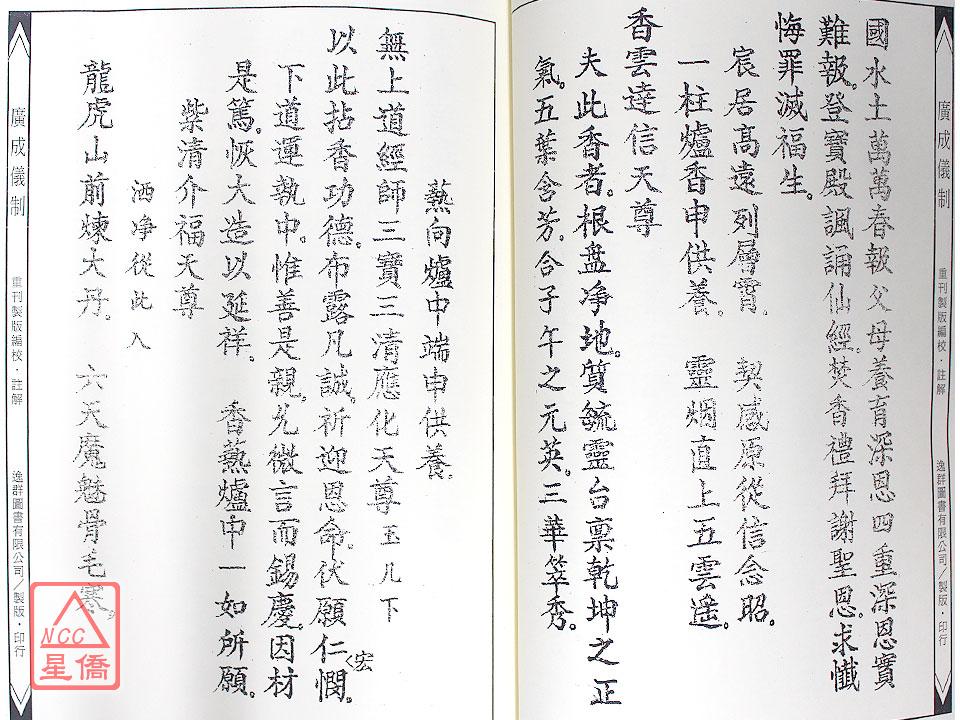 廣成儀制
重刊製版編校・註解
逸群圖書有限公司／製版・印行
國水土萬萬春報父母養育深恩四重深恩實
難報。登寶殿諷誦仙經。焚香禮拜謝聖恩。求懺
悔罪滅福生。
宸居高遠列層霄。 契感原從信念昭。
一柱爐香申供養。 靈烟直上五雲遙。
香雲達信天尊
夫此香者。根盤净地。質毓靈台。禀乾坤之正
氣。五葉含芳。合子午之元英。三華箤秀。
爇向爐中端申供養。
無上道經師三寶三清應化天尊玉几下
以此拈香功德。布露凡誠。祈迎恩命。伏願仁憫。
宏
下道運執中。惟善是親。允微言而錫慶。因材
是篤。恢大造以延祥。 香爇爐中一如所願。
紫清介福天尊
洒净從此入
龍虎山前煉大丹。 六天魔魅骨毛寒。
廣成儀制
重刊製版編校・註解
逸群圖書有限公司／製版・印行
NCC
星僑